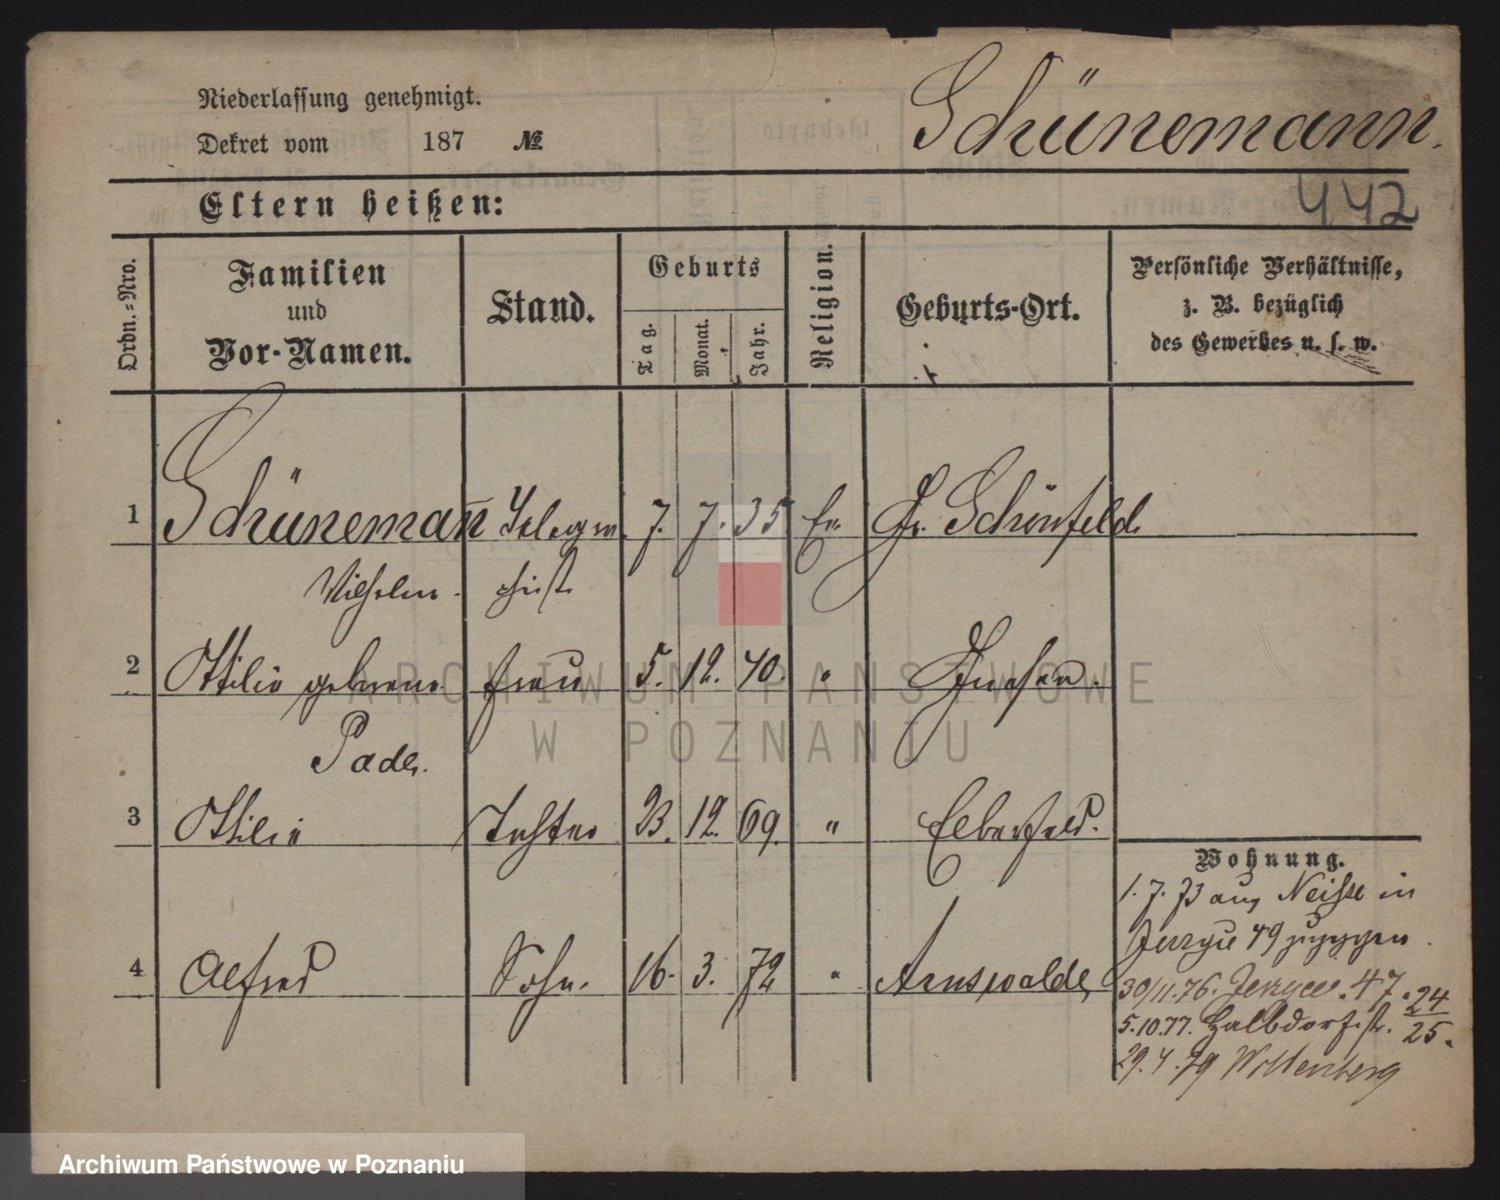 Niederlassung genehmigt.
Dekret vom 187 №
Schünemann.
442
Eltern heißen:
Ordn.-Nro.
Familien
und
Vor-Namen.
Stand.
Geburts
Tag.
Monat.
Jahr.
Religion.
Geburts-Ort.
Persönliche Verhältnisse,
z. B. bezüglich
des Gewerbes u. s. w.
1 Schünemañ Telegra 7. 7. 35 Ev. Gr. Schönfeld
Wilhelm. phist
2 Ottilie geborene Frau 5. 12. 40. " Gnesen.
Pade.
3 Ottilie Tochter 23. 12. 69. " Elberfeld.
4 Alfred Sohn. 16. 3. 72 " Arnswalde
Wohnung.
1. 7. 73 aus Neisse in
Jerzyce 49 zugezogen.
30/11.76. Jerzyce. 47.
5.10.77. Halbdorfstr. 24/25.
29.4.79 Wittenberg
ARCHIWUM PAŃSTWOWE
W POZNANIU
Archiwum Państwowe w Poznaniu